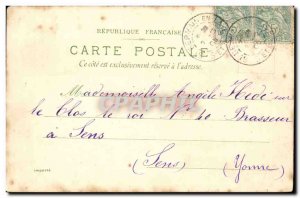 RÉPUBLIQUE FRANÇAISE
CARTE POSTALE
Ce côté est exclusivement réservé à l'adresse.
Mademoiselle Angèle
le Clos le roi N° 40 Brasseur
à Sens
(Sens) (Yonne)